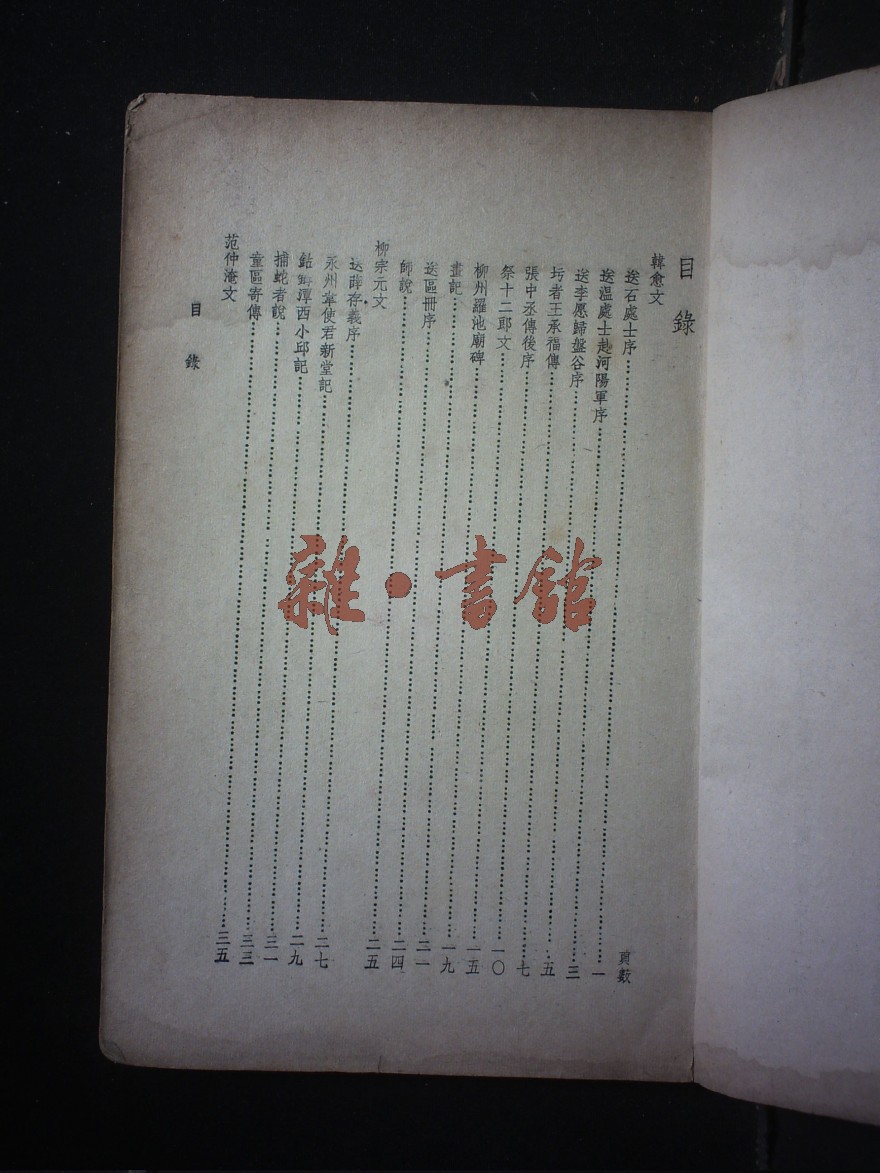 目錄
韓愈文 頁數
送石處士序……一
送溫處士赴河陽軍序……三
送李愿歸盤谷序……五
圬者王承福傳……七
張中丞傳後序……一〇
祭十二郎文……一五
柳州羅池廟碑……一九
畫記……二一
送區冊序……二四
師說……二五
柳宗元文
送薛存義序……二七
永州韋使君新堂記……二九
鈷鉧潭西小邱記……三一
捕蛇者說……三三
童區寄傳……三五
范仲淹文
目錄
雜·書館